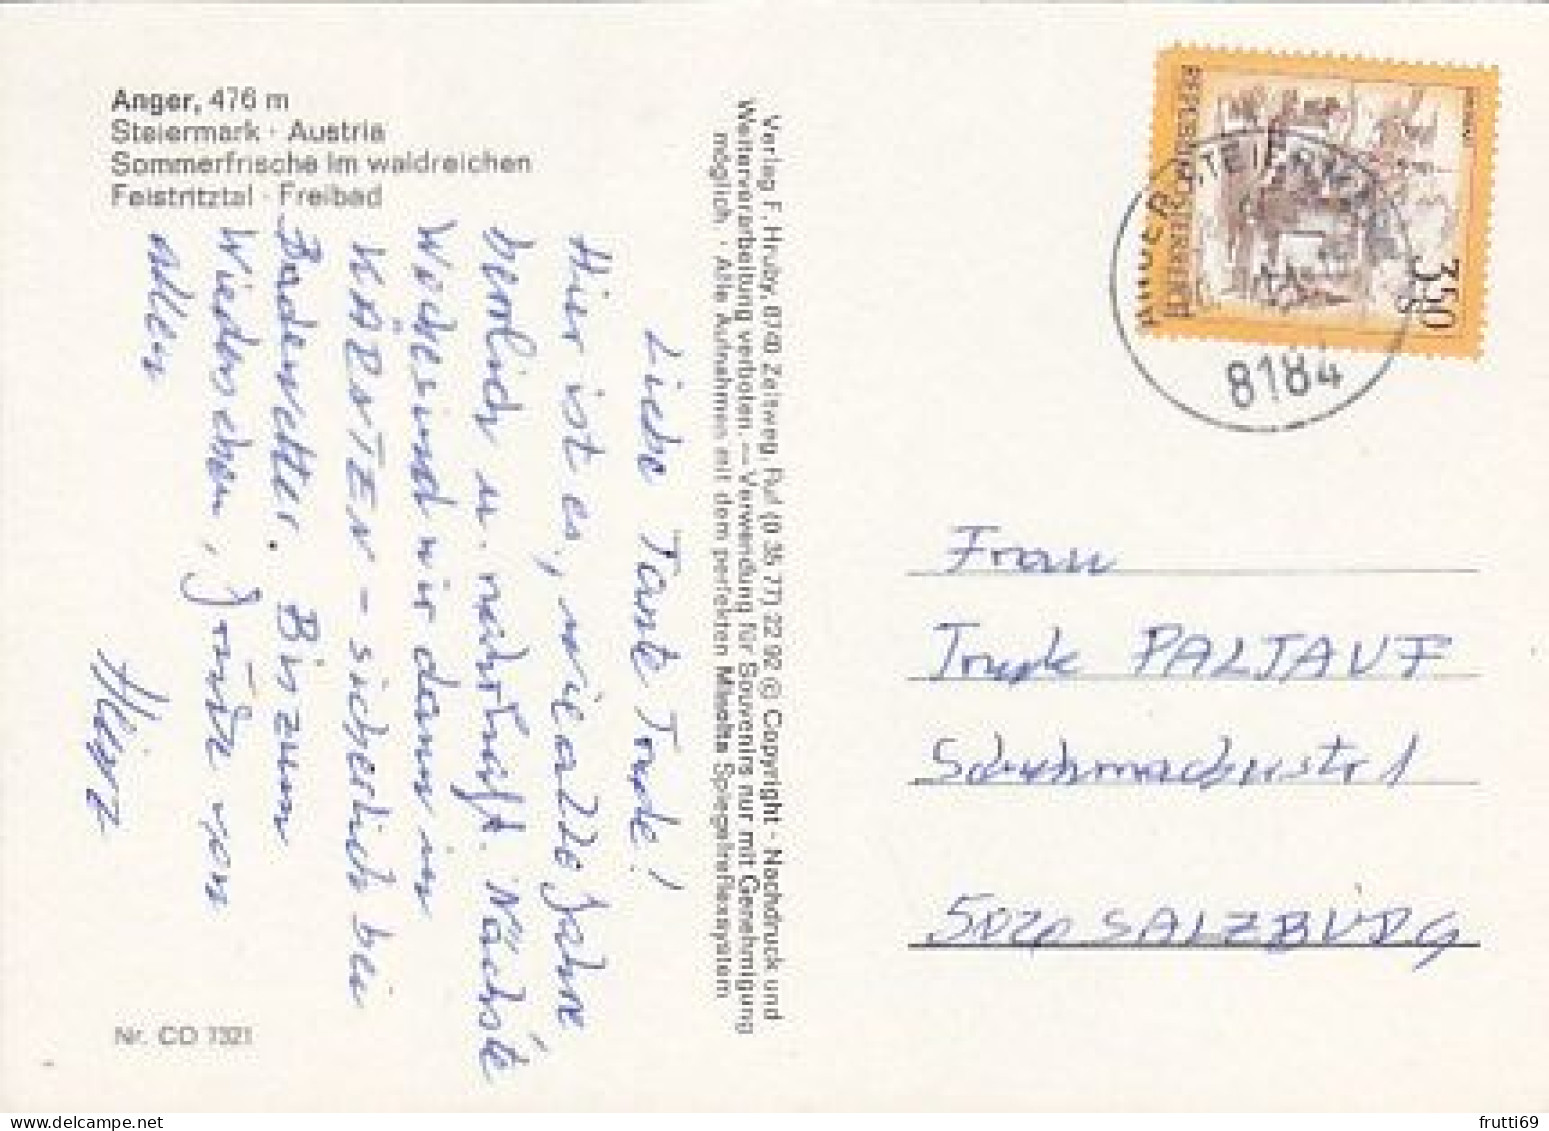 Anger, 476 m
Steiermark · Austria
Sommerfrische im waldreichen
Feistritztal · Freibad
Liebe Tante Trude!
Hier ist es, wie alle Jahre
herrlich u. nahrhaft. Nächste
Woche sind wir dann in
KÄRNTEN – sicherlich bei
Badewetter. Bis zum
Wiedersehen, Grüße von
allen
Heinz
Nr. CD 7321
Verlag F. Hruby, 8740 Zeltweg, Ruf (0 35 77) 22 92 © Copyright - Nachdruck und
Weiterverarbeitung verboten. — Verwendung für Souvenirs nur mit Genehmigung
möglich. - Alle Aufnahmen mit dem perfekten Minolta Spiegelreflexsystem
REPUBLIK ÖSTERREICH
S 3.50
STEIERM
8184
Frau
Trude PALTAUF
Schuhmacherstr 1
5020 SALZBURG
frutti69